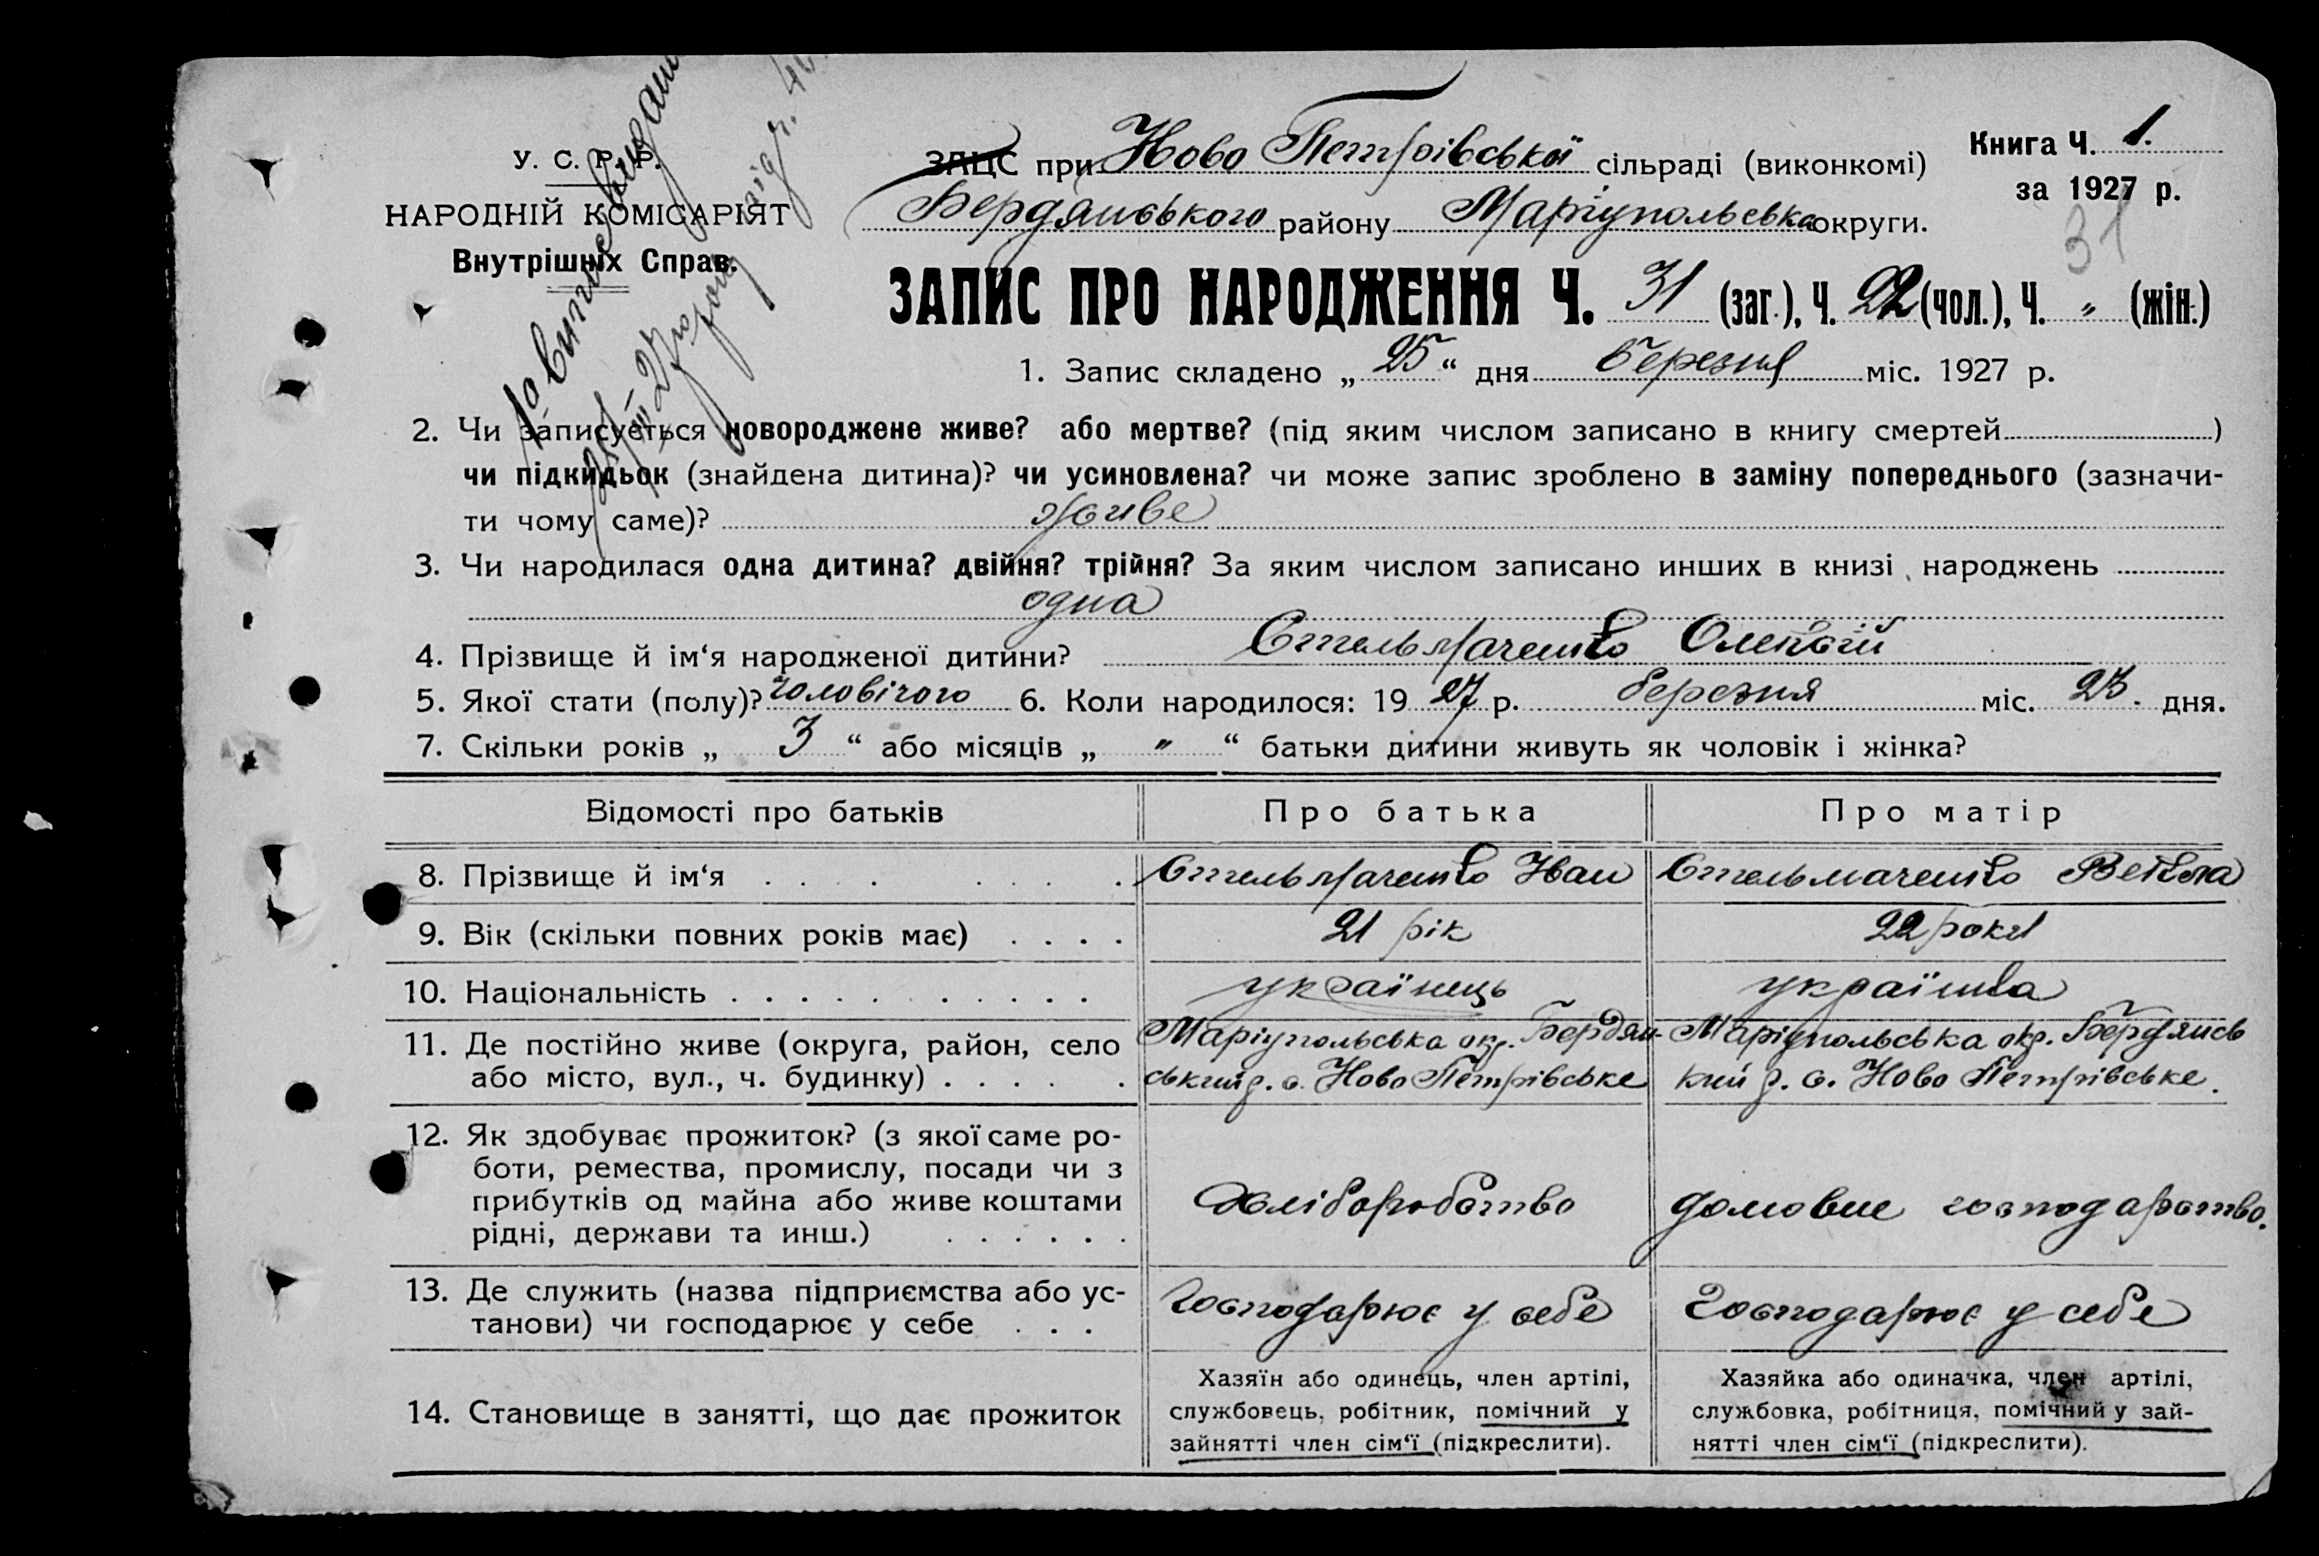 У. С. Р. Р.
НАРОДНІЙ КОМІСАРІЯТ
Внутрішніх Справ.
ЗАЦС при Ново Петрівської сільраді (виконкомі)
Бердянського району Маріупольська округи.
Книга Ч. 1.
за 1927 р.
31
ЗАПИС ПРО НАРОДЖЕННЯ Ч. 31 (заг.), Ч. 22 (чол.), Ч. „ (жін.)
1. Запис складено „ 25 “ дня березня міс. 1927 р.
2. Чи записується новороджене живе? або мертве? (під яким числом записано в книгу смертей )
чи підкидьок (знайдена дитина)? чи усиновлена? чи може запис зроблено в заміну попереднього (зазначи-
ти чому саме)? живе
3. Чи народилася одна дитина? двійня? трійня? За яким числом записано инших в книзі народжень
одна
4. Прізвище й ім‘я народженої дитини? Стельмаченко Олексій
5. Якої стати (полу)? чоловічого 6. Коли народилося: 19 27 р. березня міс. 23. дня.
7. Скільки років „ 3 “ або місяців „ „ “ батьки дитини живуть як чоловік і жінка?
Відомості про батьків Про батька Про матір
8. Прізвище й ім‘я . . . . . . . . Стельмаченко Іван Стельмаченко Векла
9. Вік (скільки повних років має) . . . . 21 рік 22 роки
10. Національність . . . . . . . . . . . українець українка
11. Де постійно живе (округа, район, село Маріупольська окр. Бердян- Маріупольська окр. Бердянсь
або місто, вул., ч. будинку) . . . . . ський р. с. Ново Петрівське кий р. с. Ново Петрівське.
12. Як здобуває прожиток? (з якої саме ро-
боти, ремества, промислу, посади чи з
прибутків од майна або живе коштами Хліборобство домовне господарство.
рідні, держави та инш.) . . . . . .
13. Де служить (назва підприємства або ус- Господарює у себе Господарює у себе
танови) чи господарює у себе . . .
14. Становище в занятті, що дає прожиток
Хазяїн або одинець, член артілі,
службовець, робітник, помічний у
зайнятті член сім‘ї (підкреслити).
Хазяйка або одиначка, член артілі,
службовка, робітниця, помічний у зай-
нятті член сім‘ї (підкреслити).